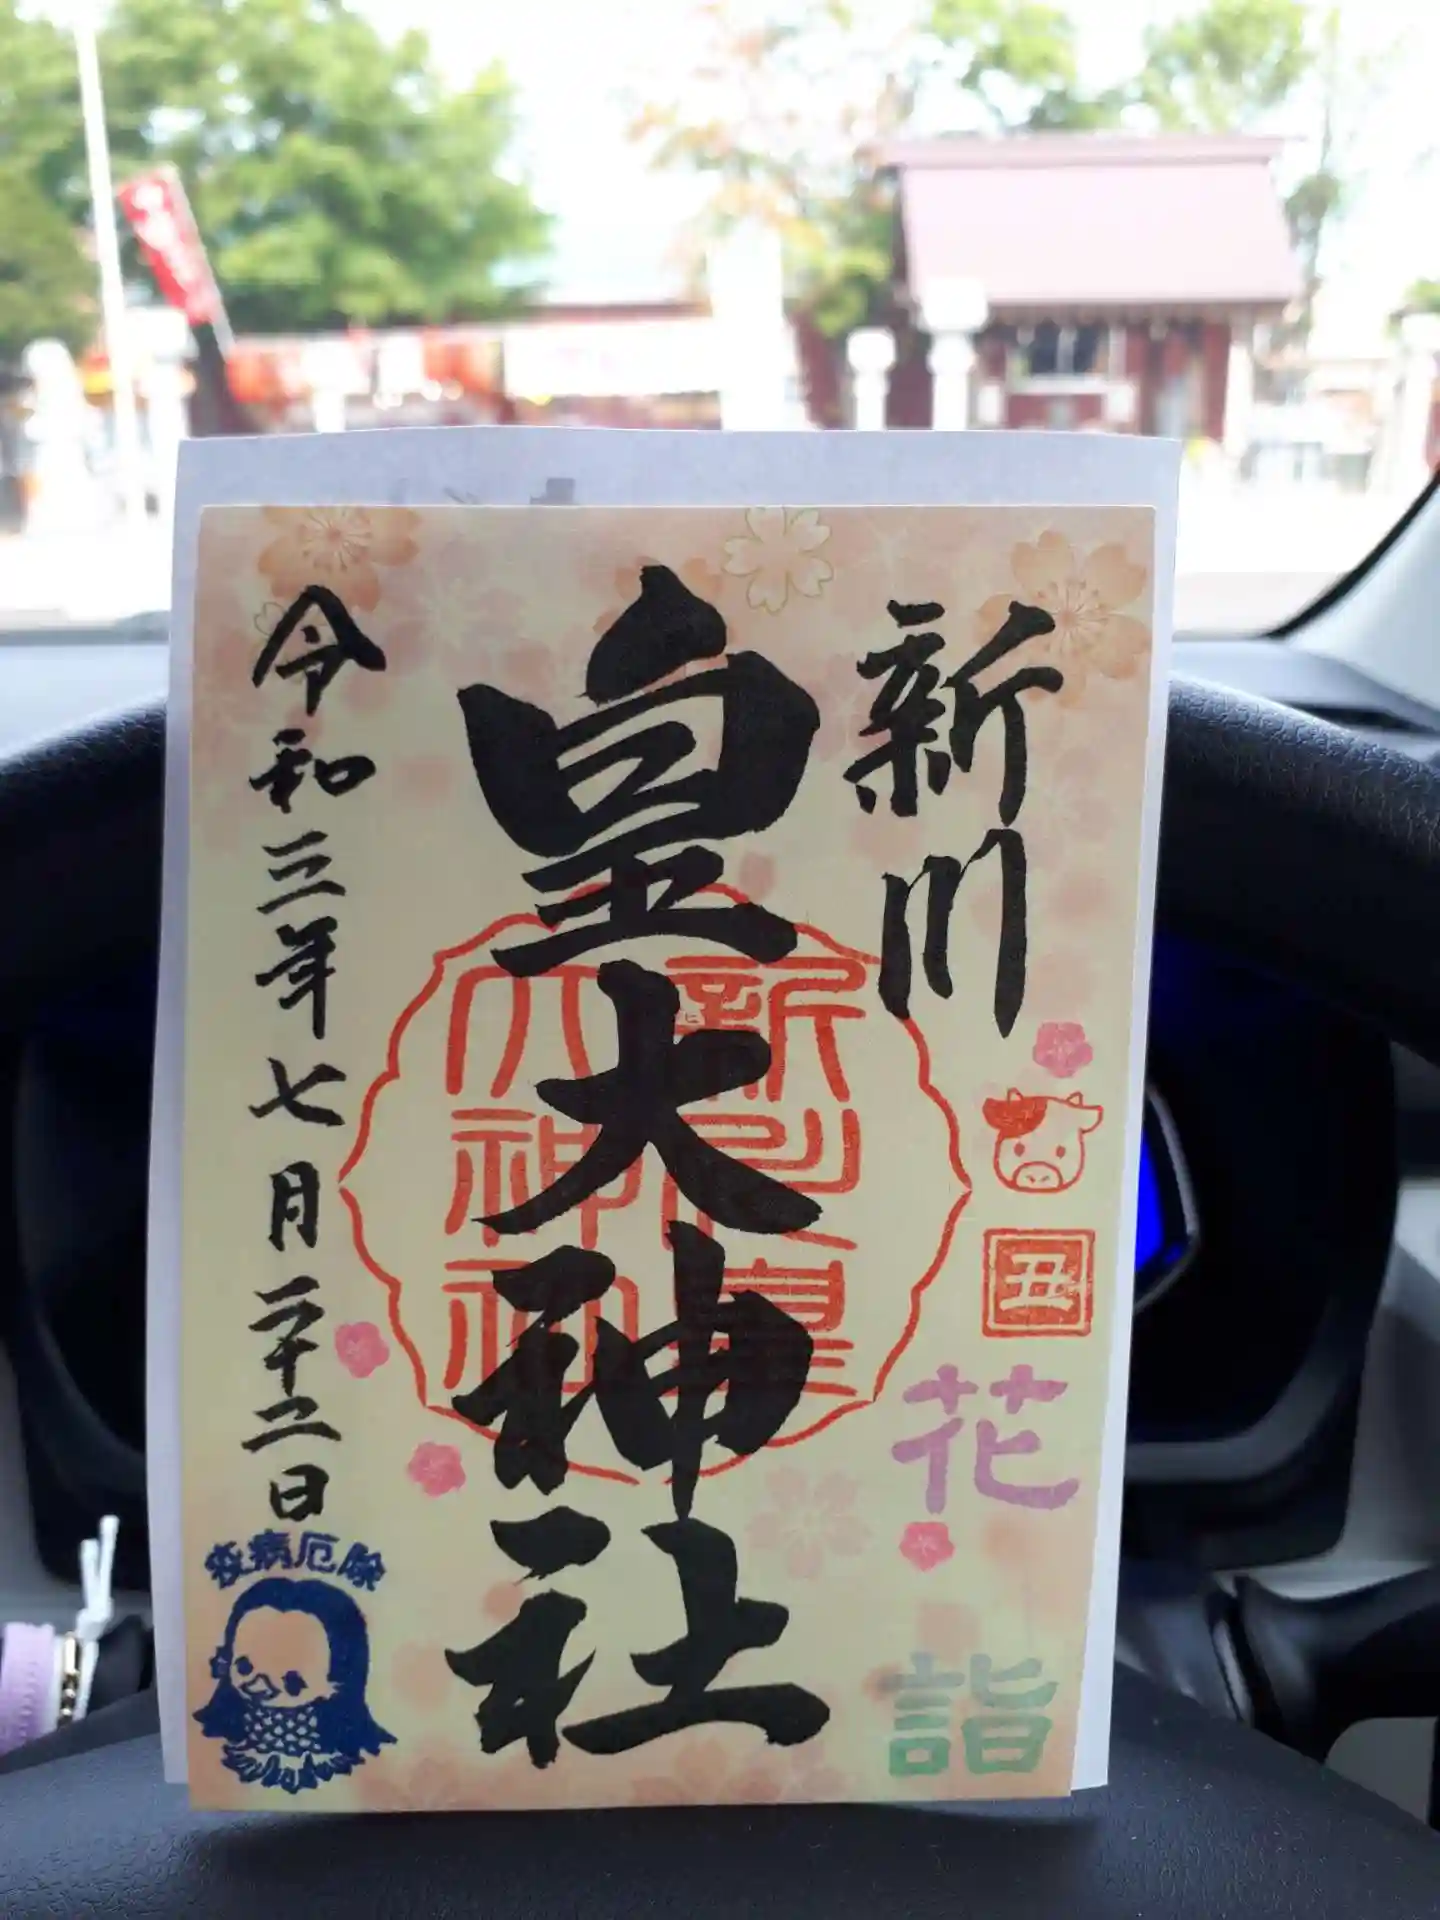 新川
皇大神社
令和三年七月二十二日
丑
花
詣
疫病厄除
新川皇
大神社